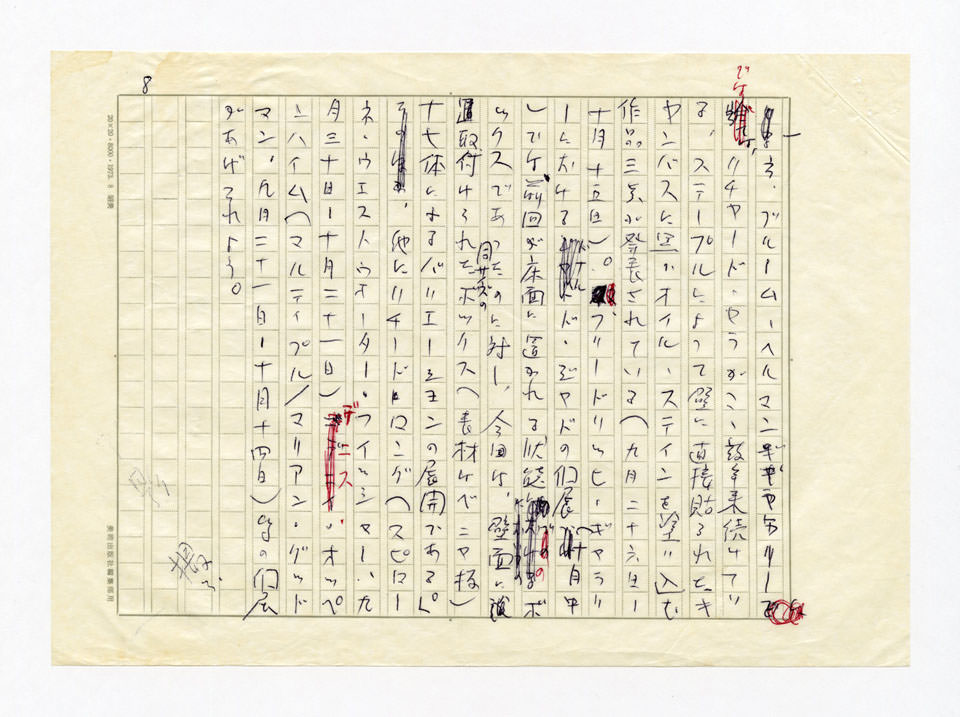 ブルーム―ヘルマンギャラリー
でけ、リチャード・セラがここ数年来続けてい
る、ステープルによって壁に直接貼られたキ
ャンバスに黒のオイル・スティンを塗り込む
作品三点が発表されている（九月二十六日―
十月十五日）。フリードリッヒ・ギャラリ
ーにおけるドナルド・ジャドの個展（十月中
）では前回が床面に置かれる状態のボ
ックスであったのに対し、今回は、壁面に
取付けられた同サイズのボックスへ表材はベニヤ板）
十七体によるバリエーションの展開である。
他にリチャード・ロング（スピロー
ネ・ウエストウオーター・フィッシャー・九
月三十日―十月二十一日）デニス・オッペ
ンハイム（マルティプル／マリアン・グッド
マン、九月二十一日―十月十四日）等の個展
があげられよう。
8
20×20・8000・1973. 8
美術出版社編集部用